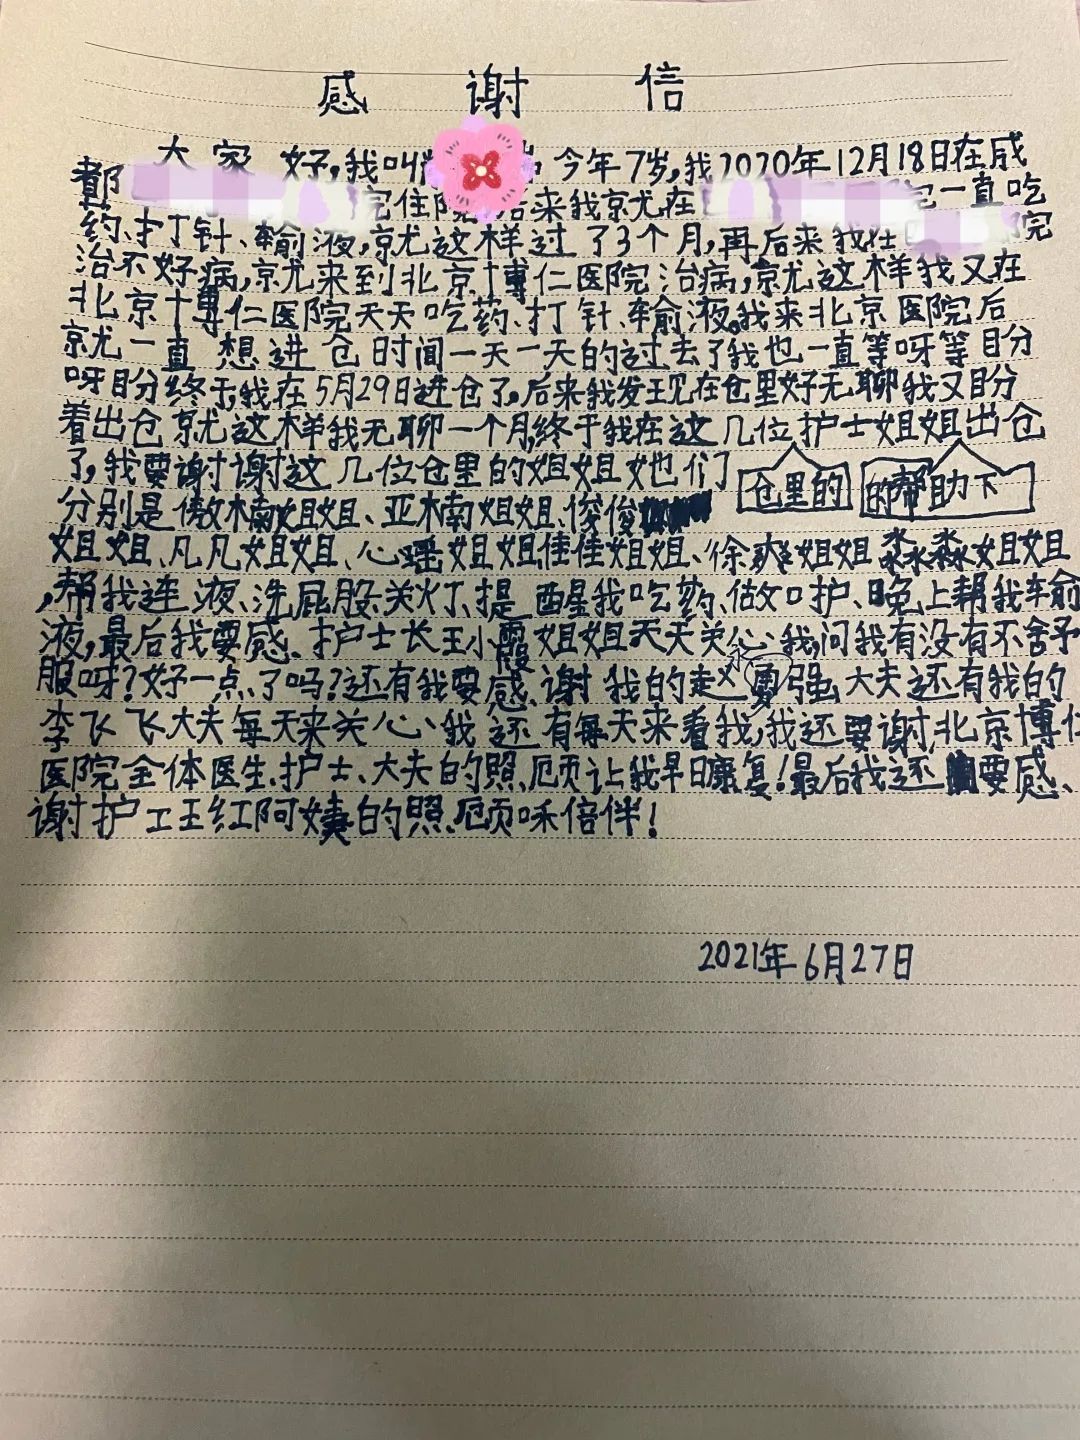 感谢信
大家好,我叫 今年7岁,我2020年12月18日在成
都 院住院后来我就在 院一直吃
药、打针、输液,就这样过了3个月,再后来我在 院
治不好病,就来到北京博仁医院治病,就这样我又在
北京博仁医院天天吃药、打针、输液。我来北京医院后
就一直想进仓时间一天一天的过去了我也一直等呀等盼
呀盼终于,我在5月29日进仓了,后来我发现在仓里好无聊我又盼
着出仓就这样我无聊一个月,终于我在这几位护士姐姐出仓
了,我要谢谢这几位仓里的姐姐她们 仓里的 的帮助下
分别是傲楠姐姐、亚楠姐姐、俊俊
姐姐、凡凡姐姐、心瑶姐姐佳佳姐姐、徐爽姐姐淼淼姐姐
,帮我连液、洗屁股、关灯、提醒我吃药、做口护、晚上帮我输
液,最后我要感、护士长王小霞姐姐天天关心我,问我有没有不舒
服呀?好一点了吗?还有我要感谢我的赵永强大夫还有我的
李飞飞大夫每天来关心我还有每天来看我,我还要谢北京博仁
医院全体医生、护士、大夫的照顾让我早日康复!最后我还要感、
谢护工王红阿姨的照顾和陪伴!
2021年6月27日